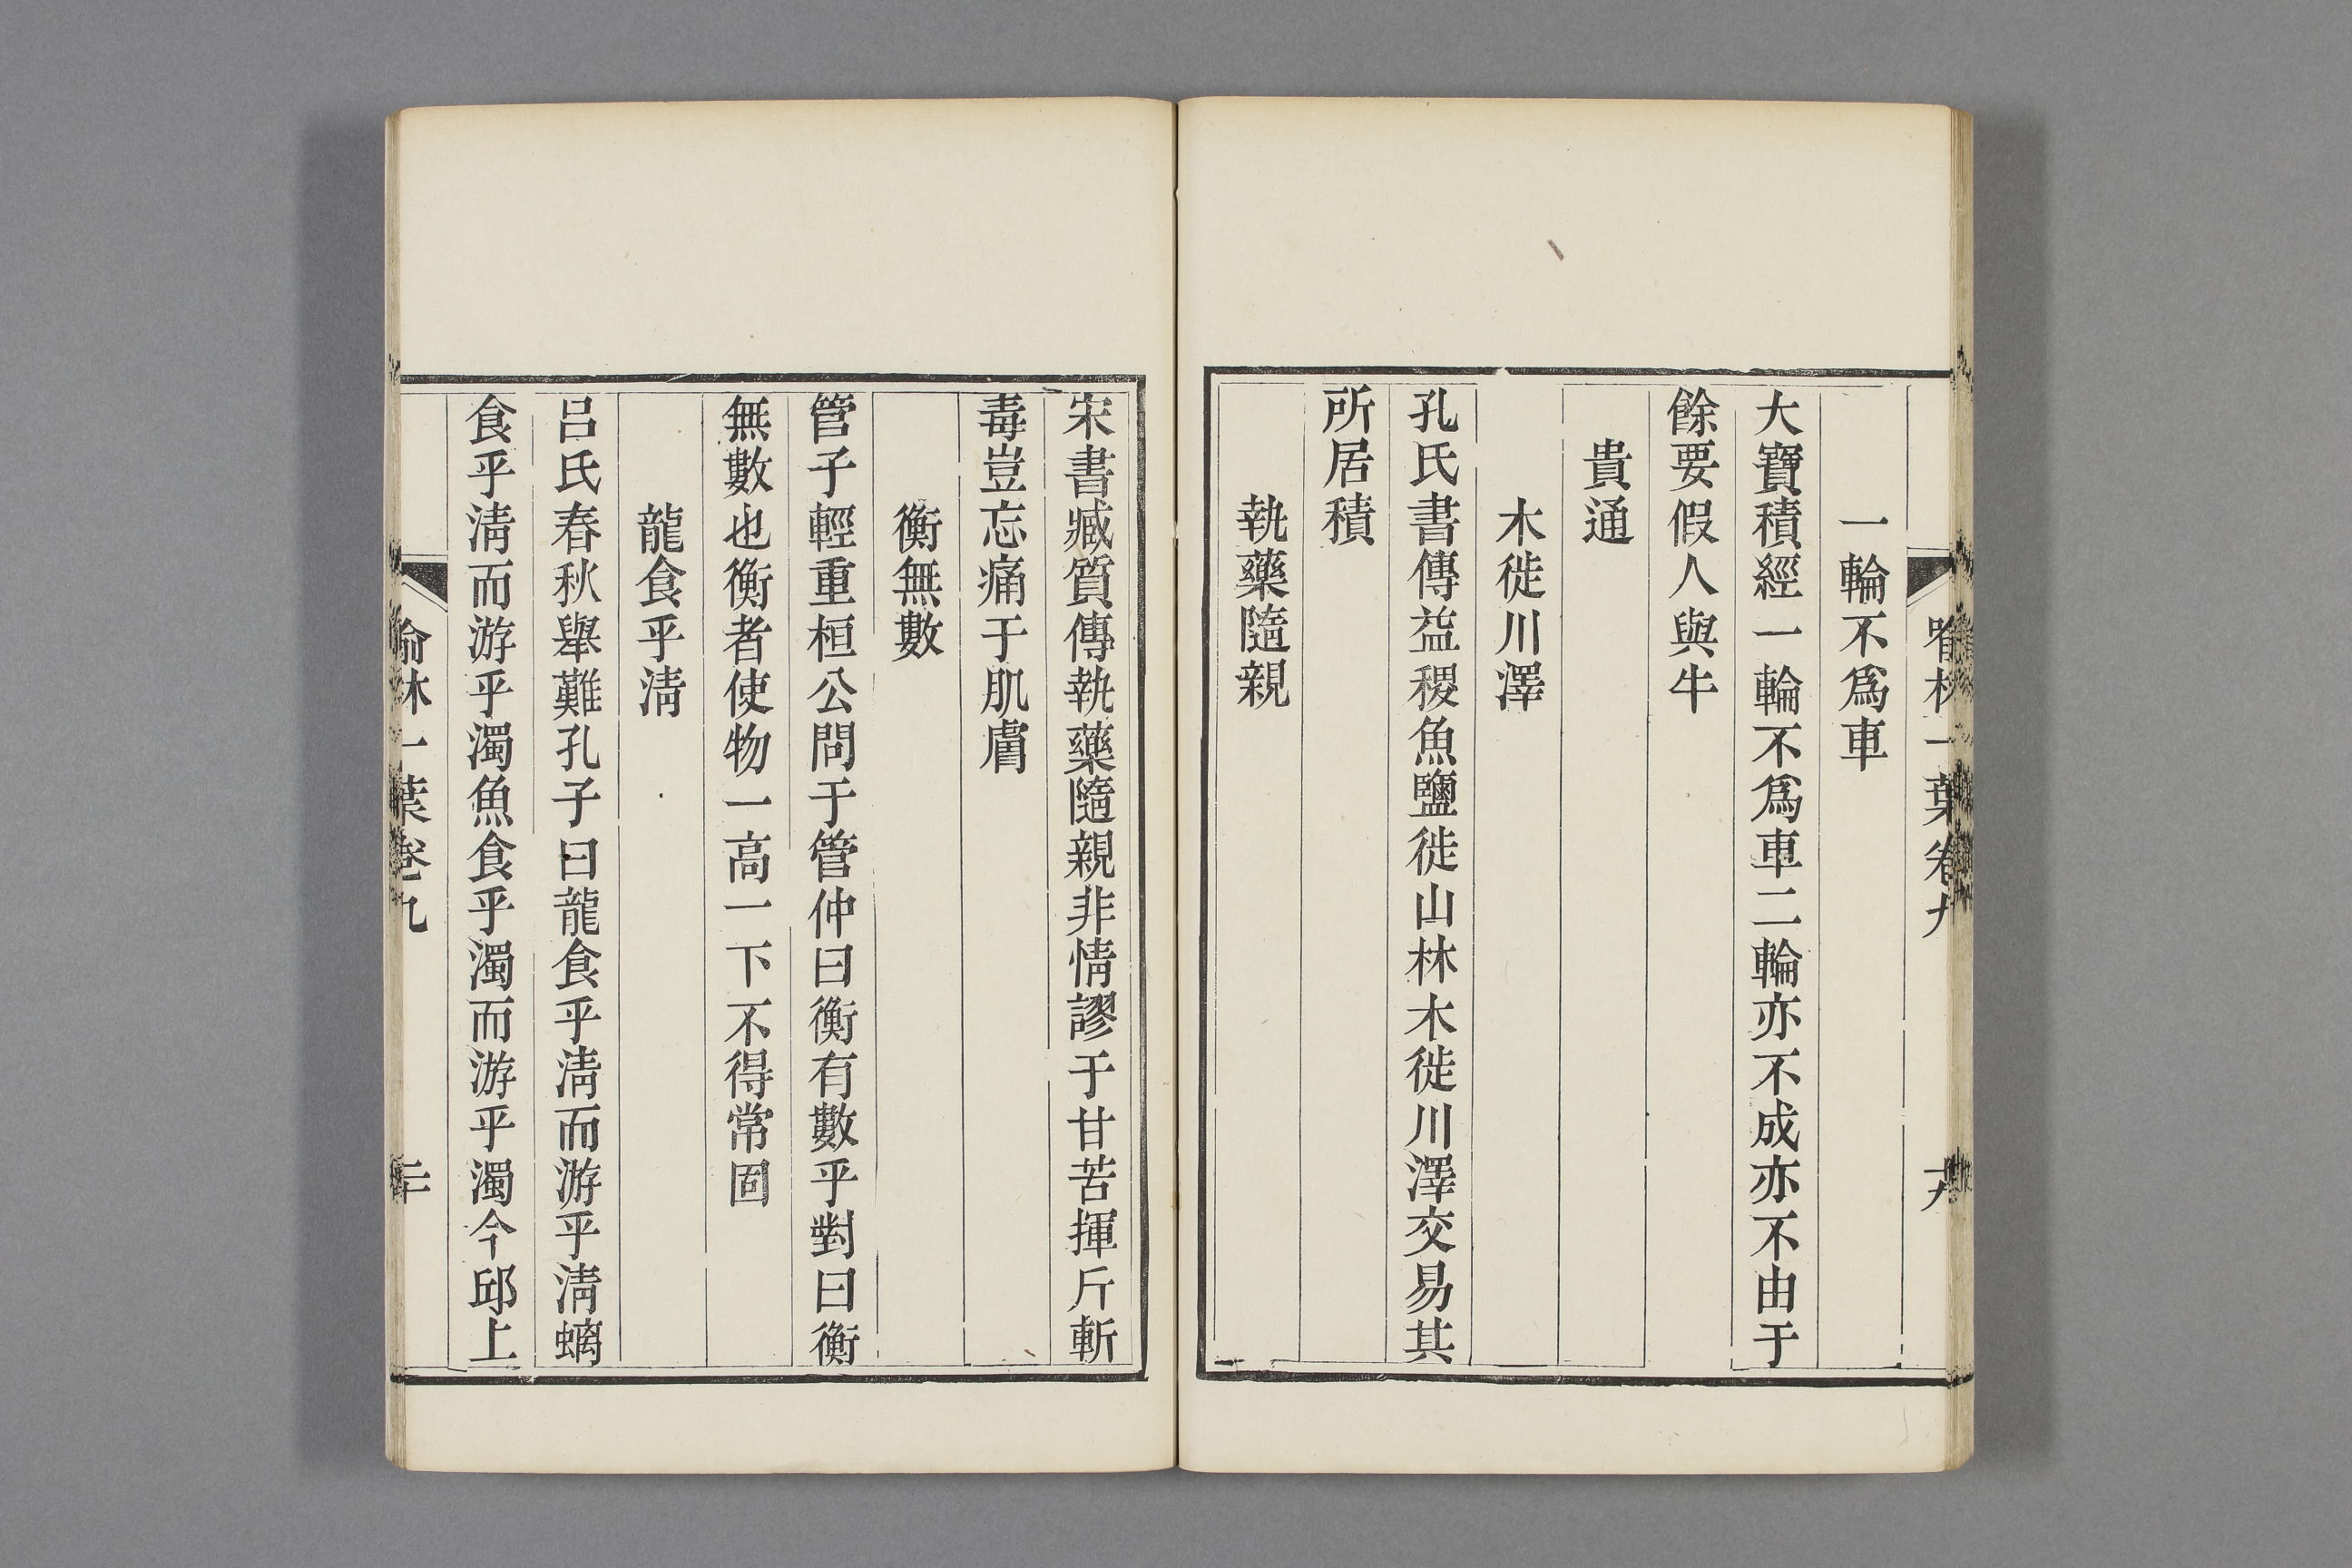 一輪不爲車
大寶積經一輪不爲車二輪亦不成亦不由于
餘要假人與牛
貴通
木徙川澤
孔氏書傳益稷魚鹽徙山林木徙川澤交易其
所居積
執藥隨親
宋書臧質傳執藥隨親非情謬于甘苦揮斤斬
毒豈忘痛于肌膚
衡無數
管子輕重桓公問于管仲曰衡有數乎對曰衡
無數也衡者使物一高一下不得常固
龍食乎淸
呂氏春秋舉難孔子曰龍食乎淸而游乎淸螭
食乎淸而游乎濁魚食乎濁而游乎濁今邱上
喻林一葉卷九
二十